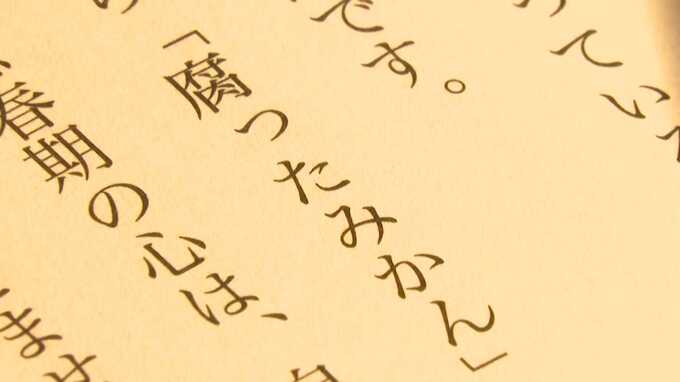 っていて
です。
「腐ったみかん」
春期の心は、
ます